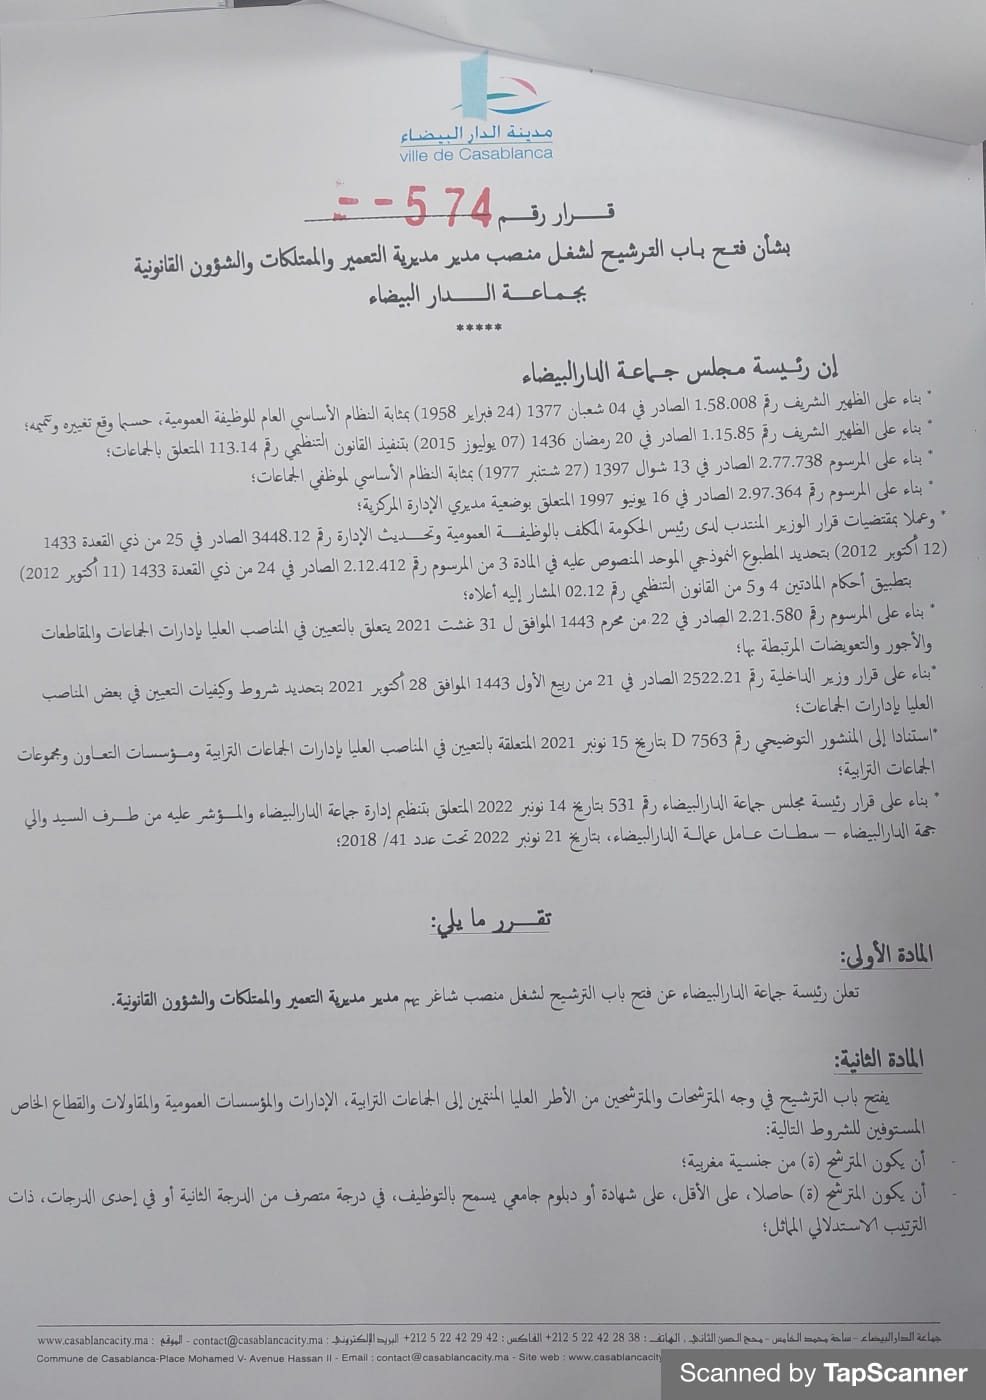 مدينة الدار البيضاء
ville de Casablanca
قـــرار رقــم 574 - -
بشأن فتح باب الترشيح لشغل منصب مدير مديرية التعمير والممتلكات والشؤون القانونية
بجماعة الـدار البيضاء
*****
إن رئيسة مجلس جماعة الدارالبيضاء
* بناء على الظهير الشريف رقم 1.58.008 الصادر في 04 شعبان 1377 (24 فبراير 1958) بمثابة النظام الأساسي العام للوظيفة العمومية، حسبما وقع تغييره وتتميمه؛
* بناء على الظهير الشريف رقم 1.15.85 الصادر في 20 رمضان 1436 (07 يوليوز 2015) بتنفيذ القانون التنظيمي رقم 113.14 المتعلق بالجماعات؛
* بناء على المرسوم 2.77.738 الصادر في 13 شوال 1397 (27 شتنبر 1977) بمثابة النظام الأساسي لموظفي الجماعات؛
* بناء على المرسوم رقم 2.97.364 الصادر في 16 يونيو 1997 المتعلق بوضعية مديري الإدارة المركزية؛
* وعملا بمقتضيات قرار الوزير المنتدب لدى رئيس الحكومة المكلف بالوظيفة العمومية وتحديث الإدارة رقم 3448.12 الصادر في 25 من ذي القعدة 1433
(12 أكتوبر 2012) بتحديد المطبوع النموذجي الموحد المنصوص عليه في المادة 3 من المرسوم رقم 2.12.412 الصادر في 24 من ذي القعدة 1433 (11 أكتوبر 2012)
بتطبيق أحكام المادتين 4 و5 من القانون التنظيمي رقم 02.12 المشار إليه أعلاه؛
* بناء على المرسوم رقم 2.21.580 الصادر في 22 من محرم 1443 الموافق ل 31 غشت 2021 يتعلق بالتعيين في المناصب العليا بإدارات الجماعات والمقاطعات
والأجور والتعويضات المرتبطة بها؛
*بناء على قرار وزير الداخلية رقم 2522.21 الصادر في 21 من ربيع الأول 1443 الموافق 28 أكتوبر 2021 بتحديد شروط وكيفيات التعيين في بعض المناصب
العليا بإدارات الجماعات؛
*استنادا إلى المنشور التوضيحي رقم D 7563 بتاريخ 15 نونبر 2021 المتعلقة بالتعيين في المناصب العليا بإدارات الجماعات الترابية ومؤسسات التعاون ومجموعات
الجماعات الترابية؛
* بناء على قرار رئيسة مجلس جماعة الدارالبيضاء رقم 531 بتاريخ 14 نونبر 2022 المتعلق بتنظيم إدارة جماعة الدارالبيضاء والمؤشر عليه من طرف السيد والي
جهة الدارالبيضاء – سطات عامل عمالة الدارالبيضاء، بتاريخ 21 نونبر 2022 تحت عدد 41/ 2018؛
تقــرر ما يلي:
المادة الأولى:
تعلن رئيسة جماعة الدارالبيضاء عن فتح باب الترشيح لشغل منصب شاغر يهم مدير مديرية التعمير والممتلكات والشؤون القانونية.
المادة الثانية:
يفتح باب الترشيح في وجه المترشحات والمترشحين من الأطر العليا المنتمين إلى الجماعات الترابية، الإدارات والمؤسسات العمومية والمقاولات والقطاع الخاص
المستوفين للشروط التالية:
- أن يكون المترشح (ة) من جنسية مغربية؛
- أن يكون المترشح (ة) حاصلا، على الأقل، على شهادة أو دبلوم جامعي يسمح بالتوظيف، في درجة متصرف من الدرجة الثانية أو في إحدى الدرجات، ذات
الترتيب الاستدلالي المماثل؛
جماعة الدارالبيضاء – ساحة محمد الخامس – محج الحسن الثاني . الهاتف : 38 28 42 22 5 212+ الفاكس : 42 29 42 22 5 212+ البريد الإلكتروني : contact@casablancacity.ma - الموقع : www.casablancacity.ma
Commune de Casablanca-Place Mohamed V- Avenue Hassan II - Email : contact@casablancacity.ma - Site web : www.casablancacity
Scanned by TapScanner